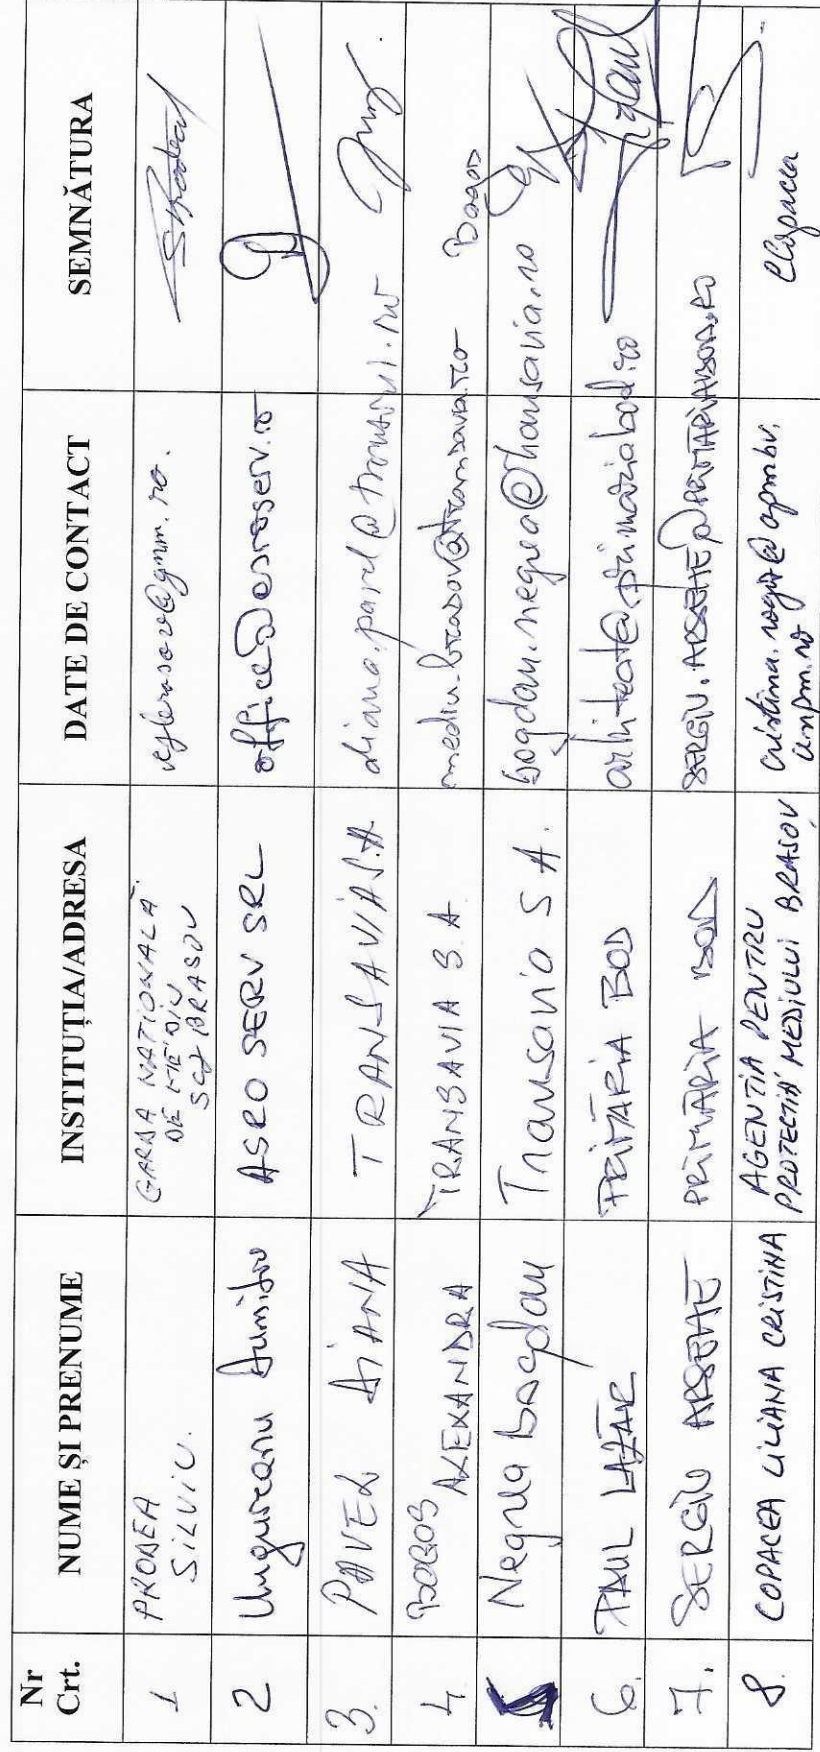 Nr Crt. NUME ȘI PRENUME INSTITUȚIA/ADRESA DATE DE CONTACT SEMNĂTURA
1 PRODEA SILVIU GARDA NATIONALĂ DE MEDIU SCJ BRASOV
2 Ungureanu Dumitru ASRO SERV SRL office@asroserv.ro
3. PAVEL DIANA TRANSAVIA S.A. diana.pavel@
4 BOGOS ALEXANDRA TRANSAVIA S.A mediu.brasov@transavia.ro Bogos
5 Negrea Bogdan Transavia S A. bogdan.negrea@transavia.ro
6. PAUL LAZĂR PRIMĂRIA BOD arhitect@primariabod.ro
7. SERGIU ARSENE PRIMĂRIA BOD SERGIU.ARSENE@PRIMARIABOD.RO
8. COPACEA LILIANA CRISTINA AGENTIA PENTRU PROTECTIA MEDIULUI BRASOV @apmbv.anpm.ro